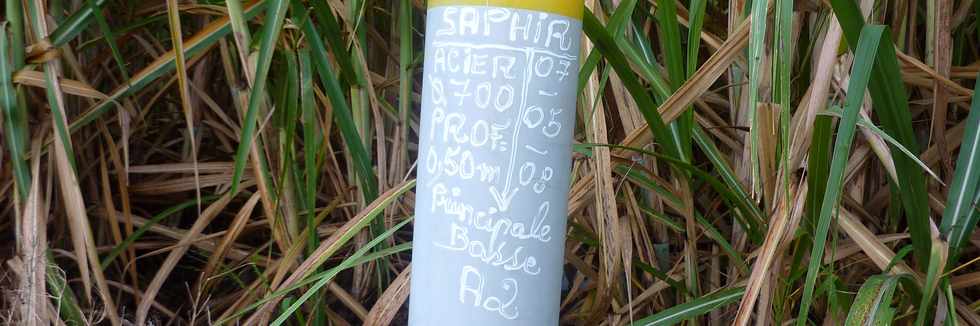 SAPHIR
ACIER 07
0,700 -
PROF. 05
0,50m -
08
Principale
Basse
A2